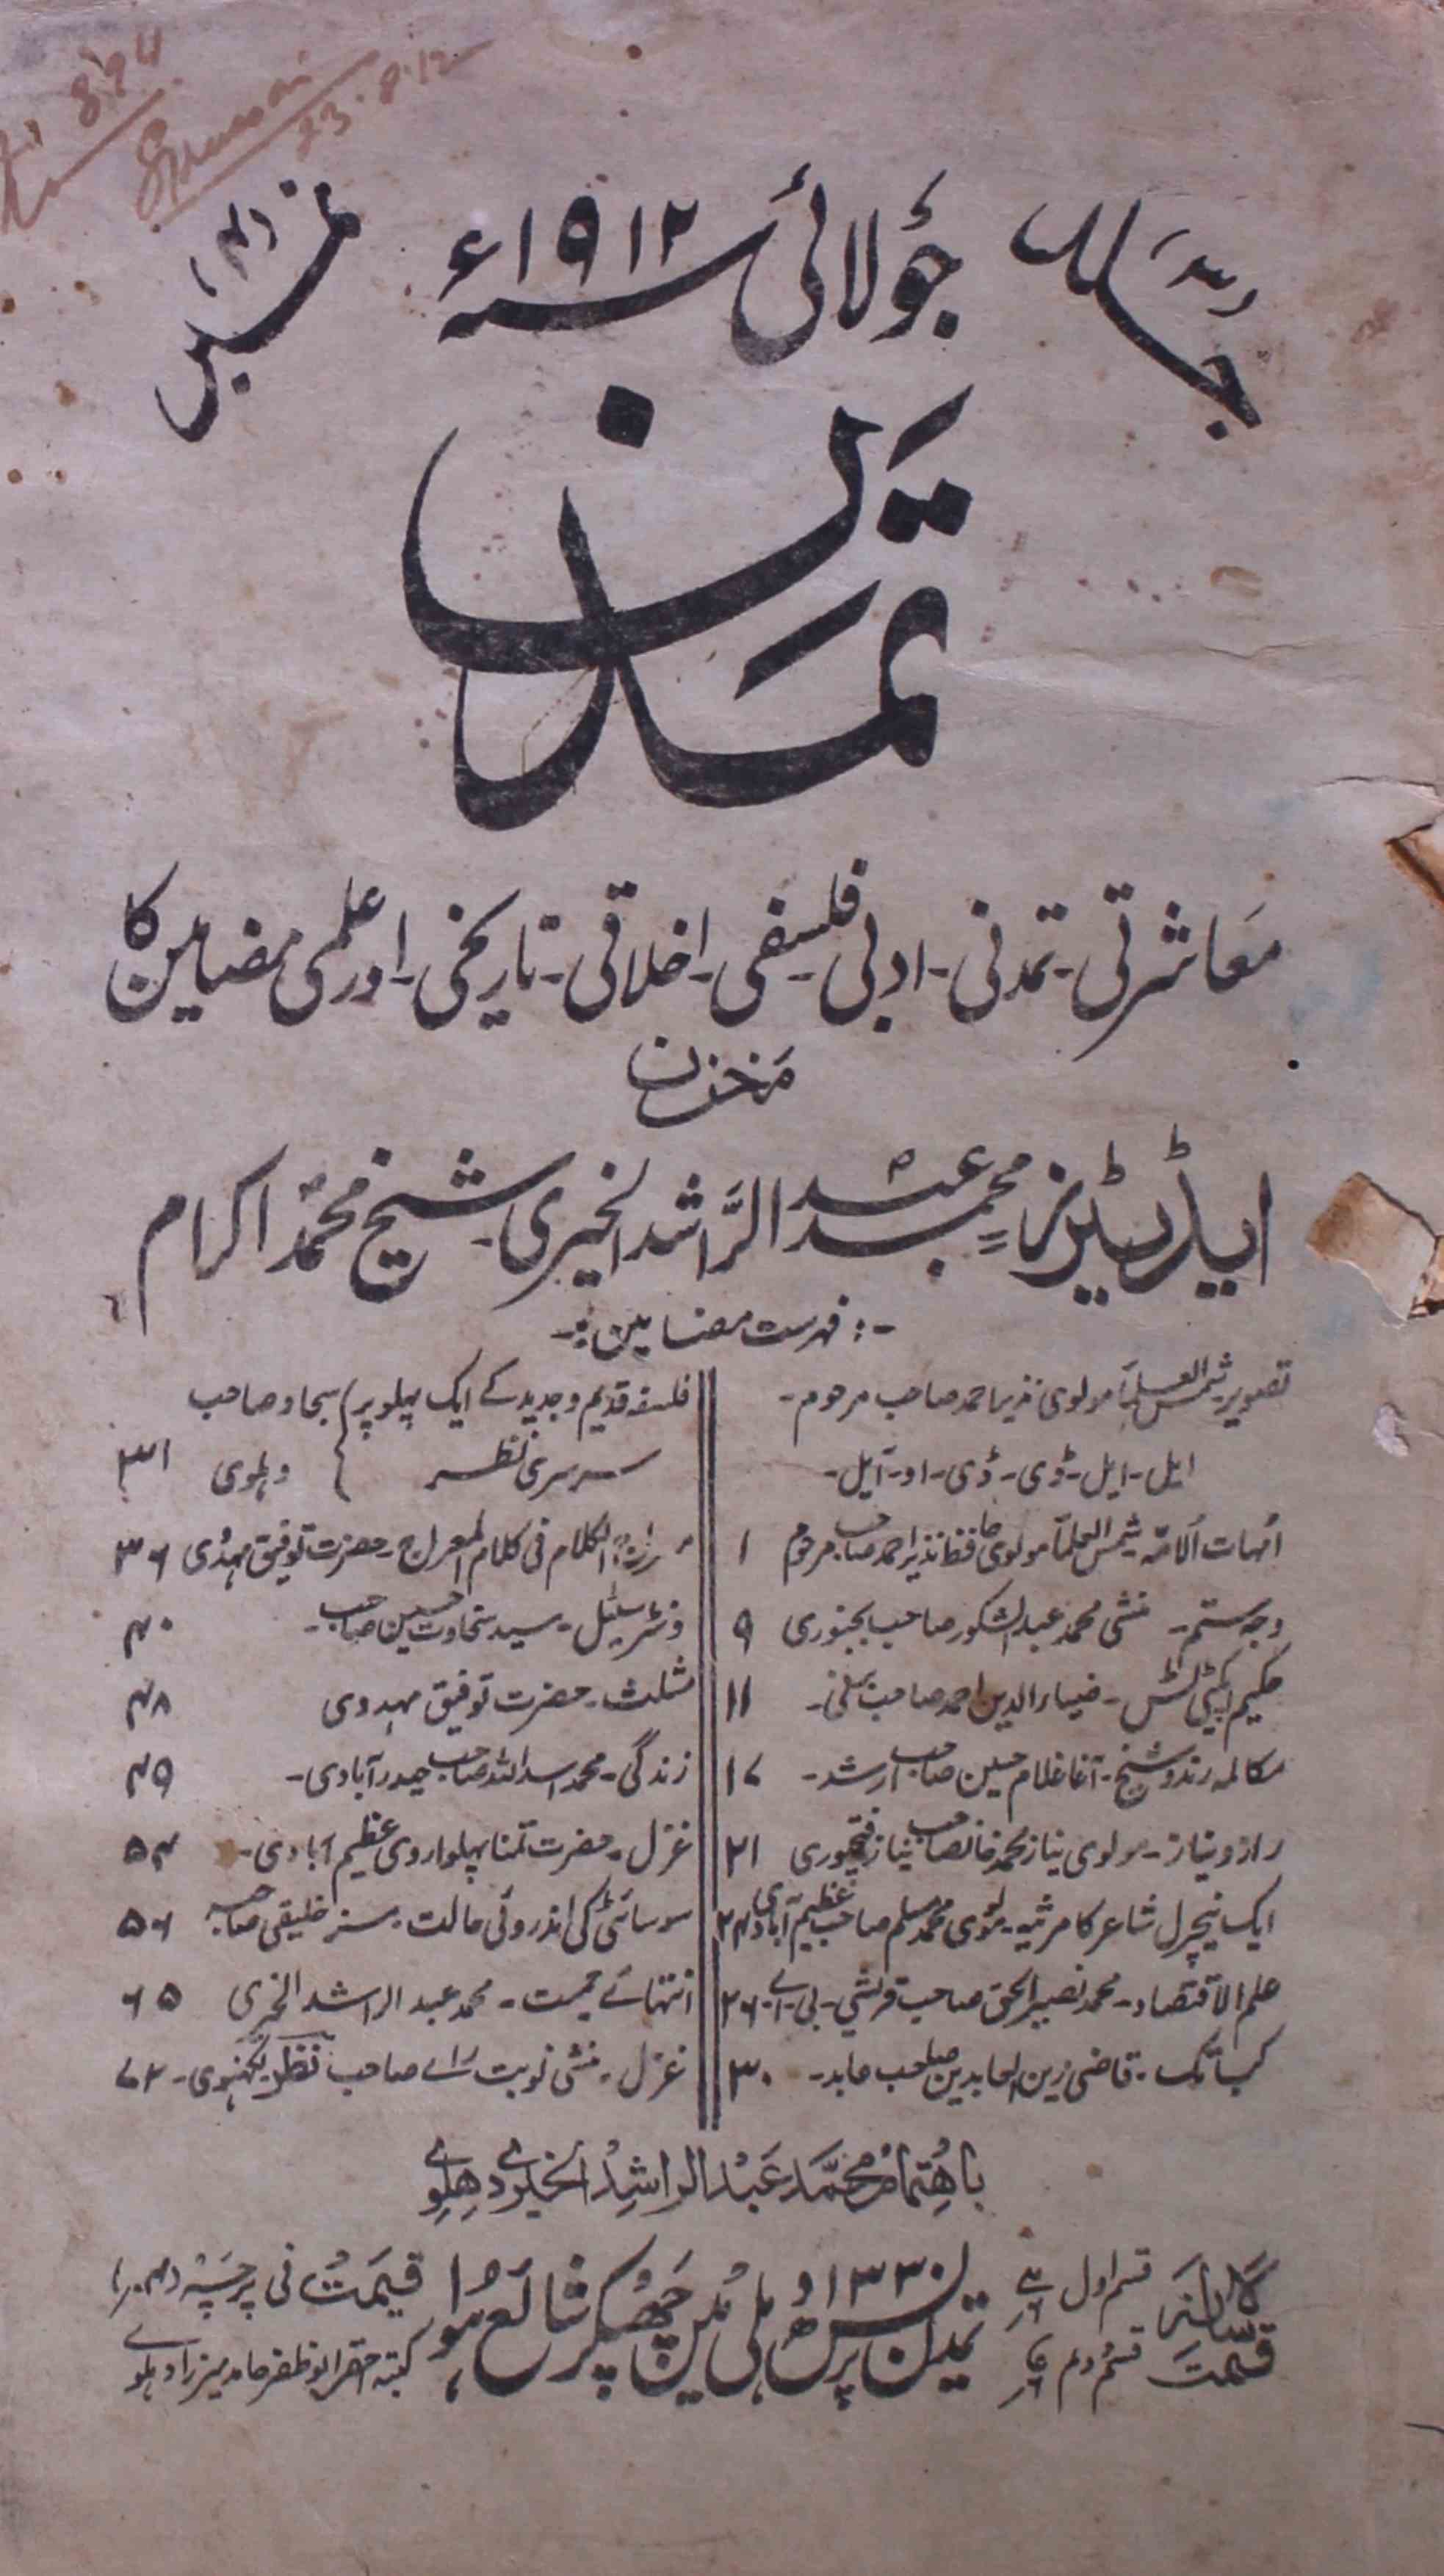 894
23.8.12
جلد (٣)
جولائی سنہ ١٩١٢ء
نمبر (۴)
تمدن
معاشرتی - تمدنی - ادبی فلسفی - اخلاقی - تاریخی - اور علمی مضامین کا
مخزن
ایڈیٹرز محمد عبد الراشد الخیری - شیخ محمد اکرام
-: فہرست مضامین :-
تصویر شمس العلما مولوی نذیر احمد صاحب مرحوم -
ایل - ایل - ڈی - ڈی - او - ایل -
امہات الامہ شمس العلما مولوی حافظ نذیر احمد صاحب مرحوم ١
وجہ ستم - منشی محمد عبدالشکور صاحب بجنوری ٩
حکیم - ضیاء الدین احمد صاحب برنی - ١١
مکالمہ رند و شیخ - آغا غلام حسین صاحب ارشد - ١٧
راز و نیاز - مولوی نیاز محمد خانصاحب نیاز فتحپوری ٢١
ایک نیچرل شاعر کا مرثیہ - مولوی محمد مسلم صاحب عظیم آبادی ٢۴
علم الاقتصاد - محمد نصیر الحق صاحب قریشی - بی - اے - ٢٦
کب تک - قاضی زین العابدین صاحب عابد - ٣٠
فلسفہ قدیم و جدید کے ایک پہلو پر } سجاد صاحب
سرسری نظر } دہلوی ٣١
الکلام فی کلام المعراج - حضرت توفیق مہدوی ٣٦
سید سخاوت حسین صاحب - ۴٠
مثلث - حضرت توفیق مہدوی ۴٨
زندگی - محمد اسد اللہ صاحب حیدرآبادی - ۴٩
غزل - حضرت تمنا پہلواروی عظیم آبادی - ۵۴
سوسائٹی کی اندرونی حالت - مسز خلیقی صاحبہ ۵٦
انتہائے حمیت - محمد عبد الراشد الخیری ٦۵
غزل - منشی نوبت رائے صاحب نظر لکھنوی - ٧٢
باہتمام محمد عبد الراشد الخیری دھلوی
سالانہ قیمت قسم اول قسم دوم
تمدن پریس دہلی میں چھپکر شائع ہوا
١٣٣٠
قیمت فی پرچہ (۴ر)
کتبہ احقر ابو ظفر حامد میرزا دہلوی